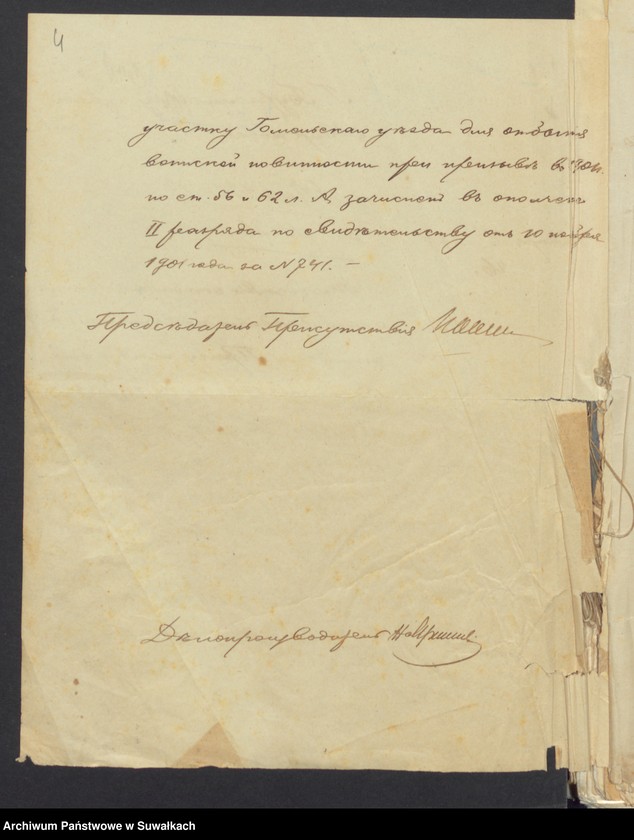 4
участку Гомельскаго уезда для отбытия
воинской повинности при призыве в
по ст. 56 и 62 л. А, зачислен въ ополчен
II разряда по свидѣтельству отъ 10 ноября
1901 года за N 741. —
Предсѣдатель Присутствия
Дѣлопроизводитель
Archiwum Państwowe w Suwałkach